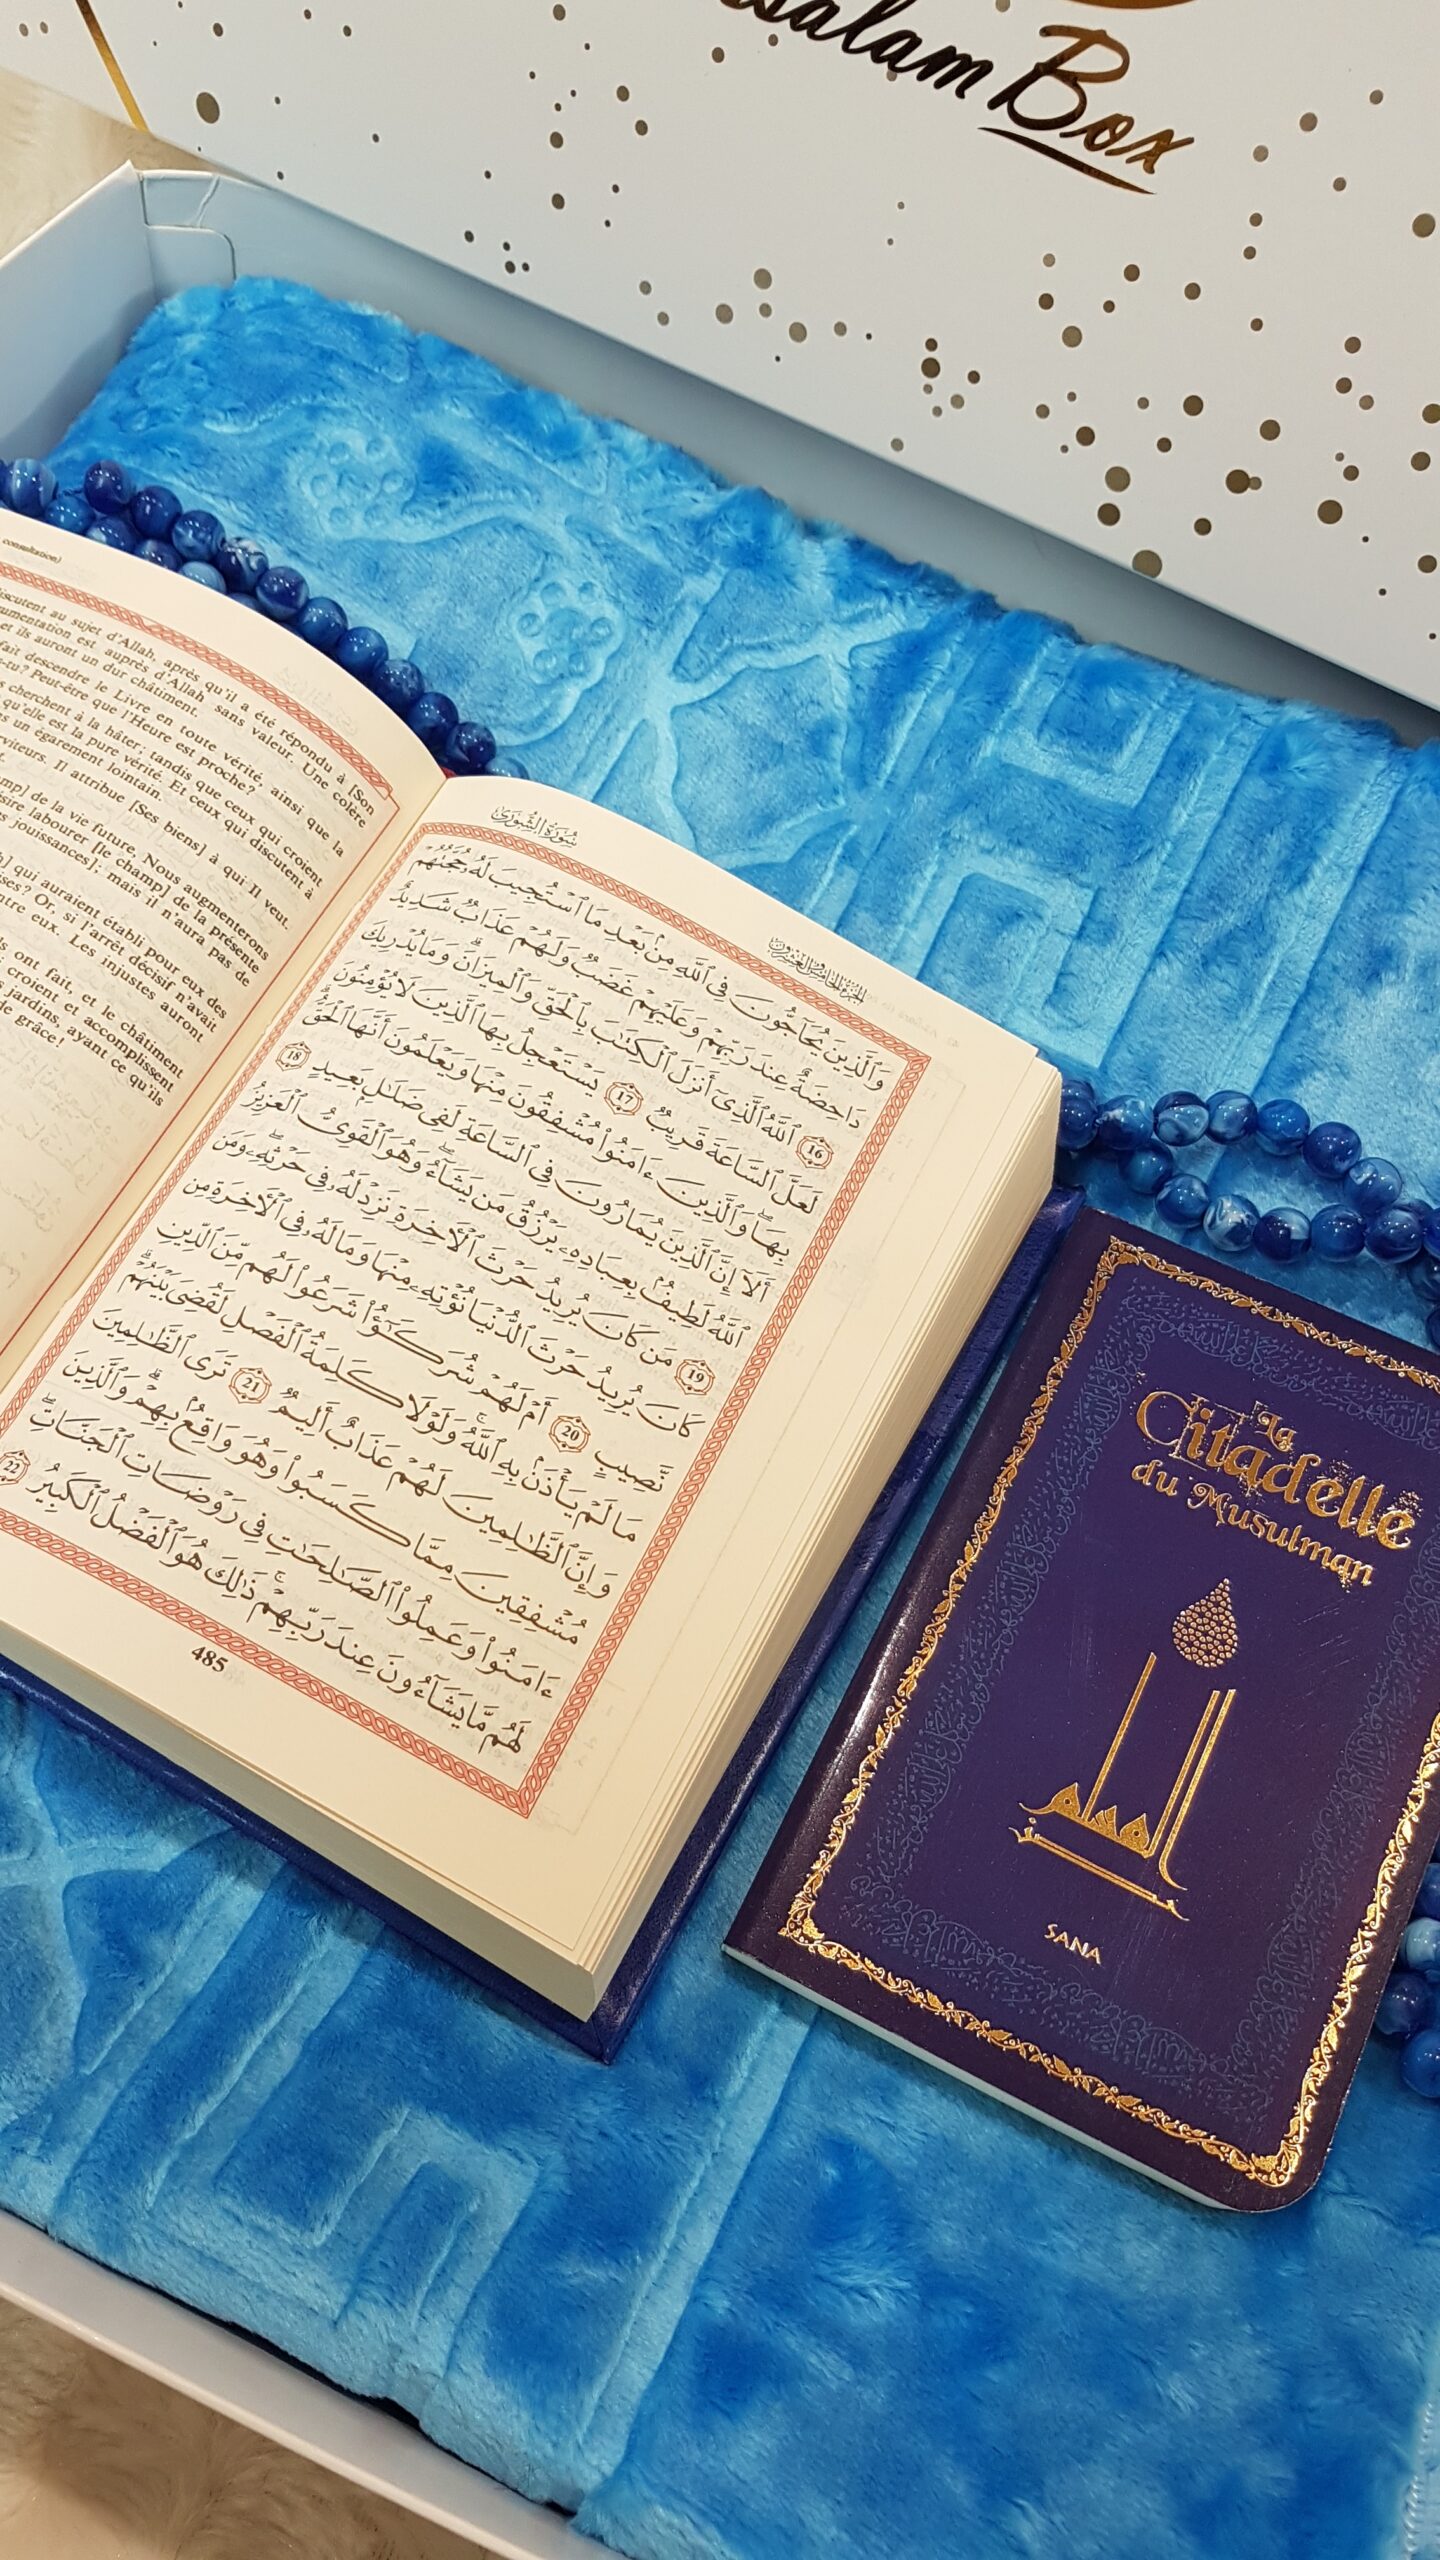 salam Box
consultation)
discutent au sujet d'Allah, après qu'il a été répondu à [Son
argumentation est auprès d'Allah sans valeur. Une colère
et ils auront un dur châtiment.
fait descendre le Livre en toute vérité, ainsi que la
-tu? Peut-être que l'Heure est proche?
cherchent à la hâter; tandis que ceux qui croient
qu'elle est la pure vérité. Et ceux qui discutent à
un égarement lointain.
serviteurs. Il attribue [Ses biens] à qui Il veut.
champ] de la vie future, Nous augmenterons
désire labourer [le champ] de la présente
jouissances]; mais il n'aura pas de
qui auraient établi pour eux des
Or, si l'arrêt décisif n'avait
entre eux. Les injustes auront
ont fait, et le châtiment
croient et accomplissent
jardins, ayant ce qu'ils
de grâce!
سُورَةُ الشُّورَىٰ
الجزء الخامس والعشرون
وَٱلَّذِينَ يُحَآجُّونَ فِى ٱللَّهِ مِنۢ بَعْدِ مَا ٱسْتُجِيبَ لَهُۥ حُجَّتُهُمْ
دَاحِضَةٌ عِندَ رَبِّهِمْ وَعَلَيْهِمْ غَضَبٌ وَلَهُمْ عَذَابٌ شَدِيدٌ
16 ٱللَّهُ ٱلَّذِىٓ أَنزَلَ ٱلْكِتَٰبَ بِٱلْحَقِّ وَٱلْمِيزَانَ ۗ وَمَا يُدْرِيكَ
لَعَلَّ ٱلسَّاعَةَ قَرِيبٌ 17 يَسْتَعْجِلُ بِهَا ٱلَّذِينَ لَا يُؤْمِنُونَ
بِهَا ۖ وَٱلَّذِينَ ءَامَنُوا۟ مُشْفِقُونَ مِنْهَا وَيَعْلَمُونَ أَنَّهَا ٱلْحَقُّ ۗ
أَلَآ إِنَّ ٱلَّذِينَ يُمَارُونَ فِى ٱلسَّاعَةِ لَفِى ضَلَٰلٍۭ بَعِيدٍ 18
ٱللَّهُ لَطِيفٌۢ بِعِبَادِهِۦ يَرْزُقُ مَن يَشَآءُ ۖ وَهُوَ ٱلْقَوِىُّ ٱلْعَزِيزُ
19 مَن كَانَ يُرِيدُ حَرْثَ ٱلْـَٔاخِرَةِ نَزِدْ لَهُۥ فِى حَرْثِهِۦ ۖ وَمَن
كَانَ يُرِيدُ حَرْثَ ٱلدُّنْيَا نُؤْتِهِۦ مِنْهَا وَمَا لَهُۥ فِى ٱلْـَٔاخِرَةِ مِن
نَّصِيبٍ 20 أَمْ لَهُمْ شُرَكَٰٓؤُا۟ شَرَعُوا۟ لَهُم مِّنَ ٱلدِّينِ
مَا لَمْ يَأْذَنۢ بِهِ ٱللَّهُ ۚ وَلَوْلَا كَلِمَةُ ٱلْفَصْلِ لَقُضِىَ بَيْنَهُمْ ۗ
وَإِنَّ ٱلظَّٰلِمِينَ لَهُمْ عَذَابٌ أَلِيمٌ 21 تَرَى ٱلظَّٰلِمِينَ
مُشْفِقِينَ مِمَّا كَسَبُوا۟ وَهُوَ وَاقِعٌۢ بِهِمْ ۗ وَٱلَّذِينَ
ءَامَنُوا۟ وَعَمِلُوا۟ ٱلصَّٰلِحَٰتِ فِى رَوْضَاتِ ٱلْجَنَّاتِ ۖ
لَهُم مَّا يَشَآءُونَ عِندَ رَبِّهِمْ ۚ ذَٰلِكَ هُوَ ٱلْفَضْلُ ٱلْكَبِيرُ 22
485
La
Citadelle
du Musulman
حصن المسلم
SANA